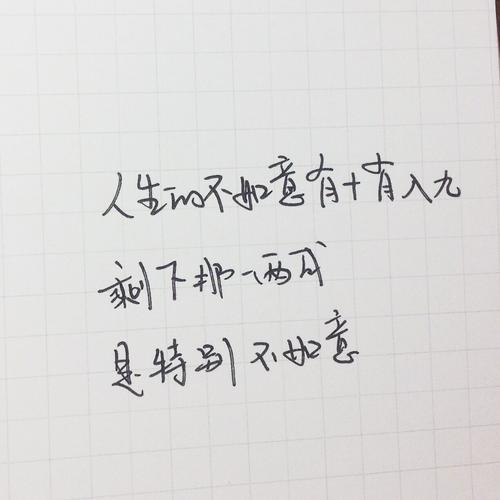 人生的不如意有十有八九
剩下那一两成
是特别不如意